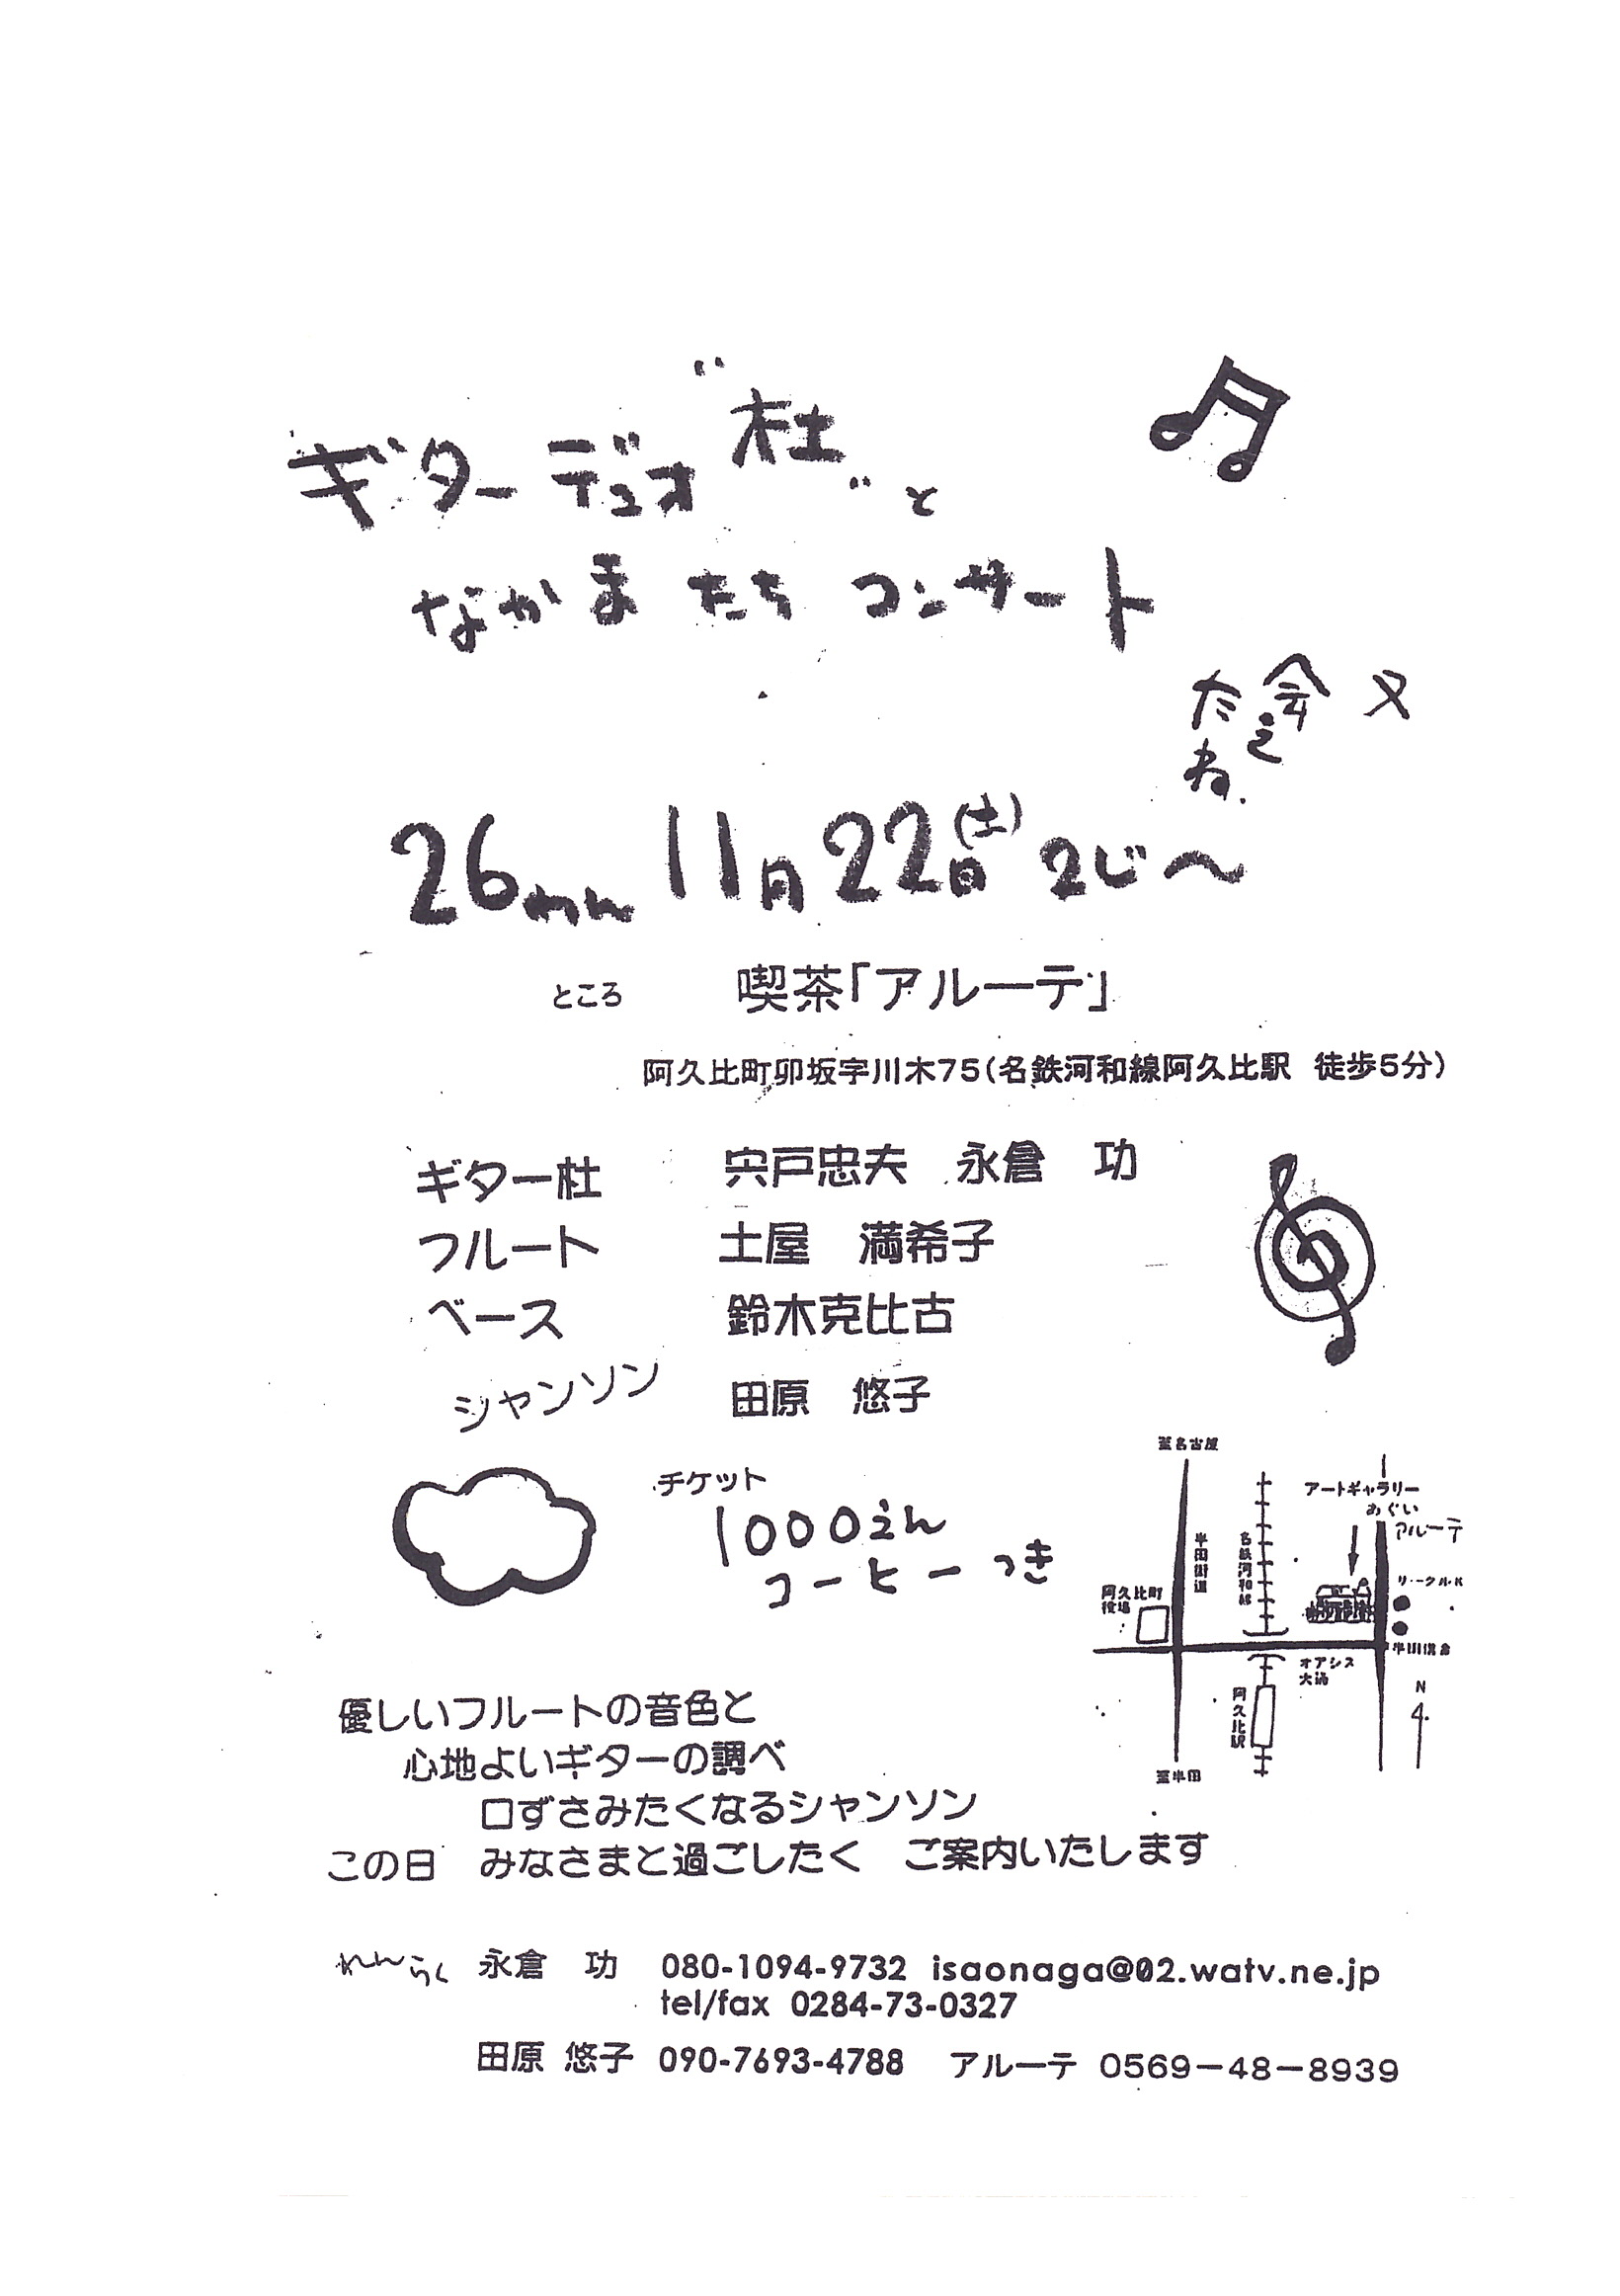 ギターデュオ"杜"と
なかまたちコンサート
又
会えたね.
26ねん 11月22日(土) 2じ〜
ところ 喫茶「アルーテ」
阿久比町卯坂字川木75(名鉄河和線阿久比駅 徒歩5分)
ギター杜 宍戸忠夫 永倉 功
フルート 土屋 満希子
ベース 鈴木克比古
シャンソン 田原 悠子
チケット
1000えん
コーヒーつき
至名古屋
半田街道
名鉄河和線
アートギャラリー
あぐい
アルーテ
阿久比町
役場
オアシス
大渕
阿久比駅
N
至半田
優しいフルートの音色と
心地よいギターの調べ
口ずさみたくなるシャンソン
この日 みなさまと過ごしたく ご案内いたします
れんらく 永倉 功 080-1094-9732 isaonaga@02.watv.ne.jp
tel/fax 0284-73-0327
田原 悠子 090-7693-4788 アルーテ 0569-48-8939